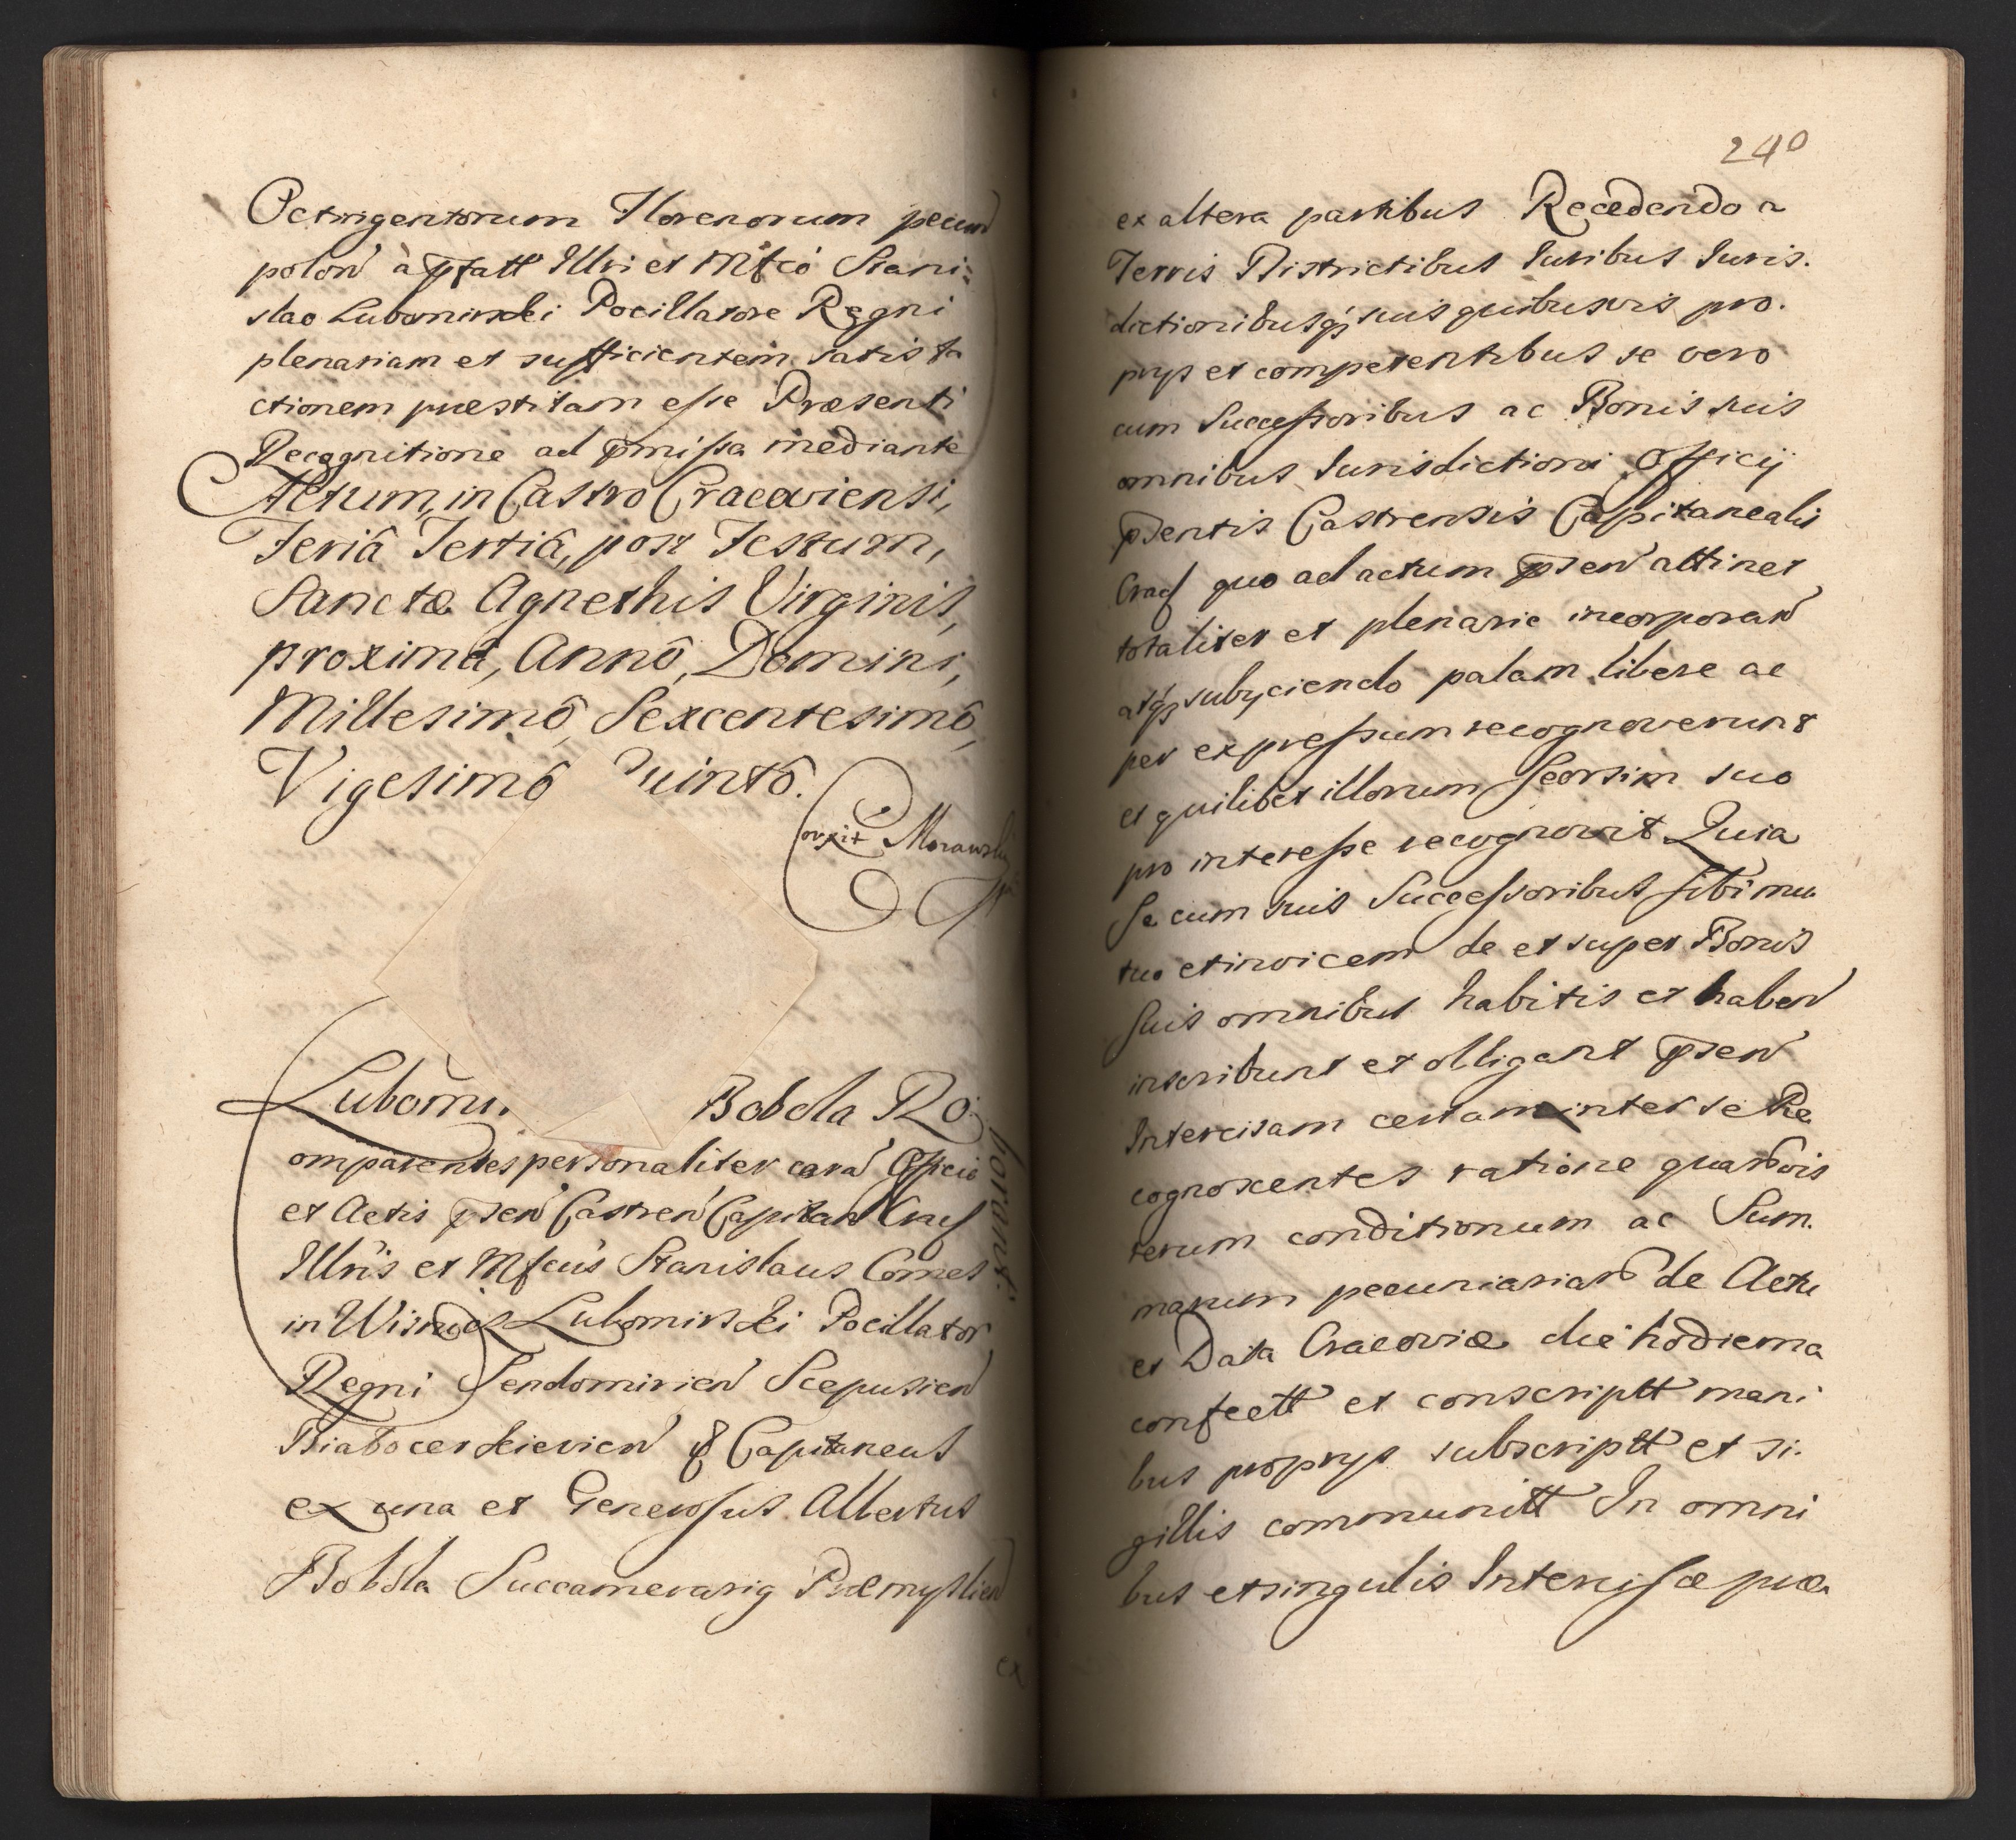 Octingentorum Florenorum pecun
polon à pfatt Illri et Mfco Stani:
slao Lubomirski Pocillatore Regni
plenariam et sufficientem satisfa
ctionem præstitam esse Præsenti
Recognitione ad pmissa mediante
Actum, in Castro Cracoviensi,
Feriâ Tertiâ, post Festum,
Sanctæ Agnethis Virginis,
proximâ, Annô, Domini,
Millesimô, Sexcentesimô,
Vigesimô uintô.
Corxit Morawsky
Lubomi. Bobola Ro
borant.
Comparentes personaliter coram Officio
et Actis psen Castren Capitan Crac
Illris et Mfcus Stanislaus Comes
in Wisnicz Lubomirski Pocillator
Regni Sendomirien Scepusien
Białocerkievien & Capitaneus
ex una et Generosus Albertus
Bobola Succamerarig Præmyslien
ex
240
ex altera partibus Recedendo a
Terris Districtibus Iuribus Iuris.
dictionibusq suis quibusvis pro.
prys et competentibus se vero
cum Successoribus ac Bonis suis
omnibus Iurisdictioni Officij
psentis Castrensis Capitanealis
Crac quo ad actum psen attinet
totaliter et plenarie incorporan
atq subyciendo palam libere ac
per expressum recognoverunt
et quilibet illorum seorsim suo
pro interesse recognovit Quia
se cum suis Successoribus sibi mu
tuo et invicem de et super Bonis
suis omnibus habitis et haben
inscribunt et obligant psen
Intercisam certam inter se Re
cognoscentes ratione quarvis
rerum conditionum ac Sum.
marum pecuniariar de Actu
et Data Cracoviæ die hodierna
confectt et conscriptt mani
bus proprys subscriptt et si.
gillis communitt In omni
bus et singulis Intercisæ præ